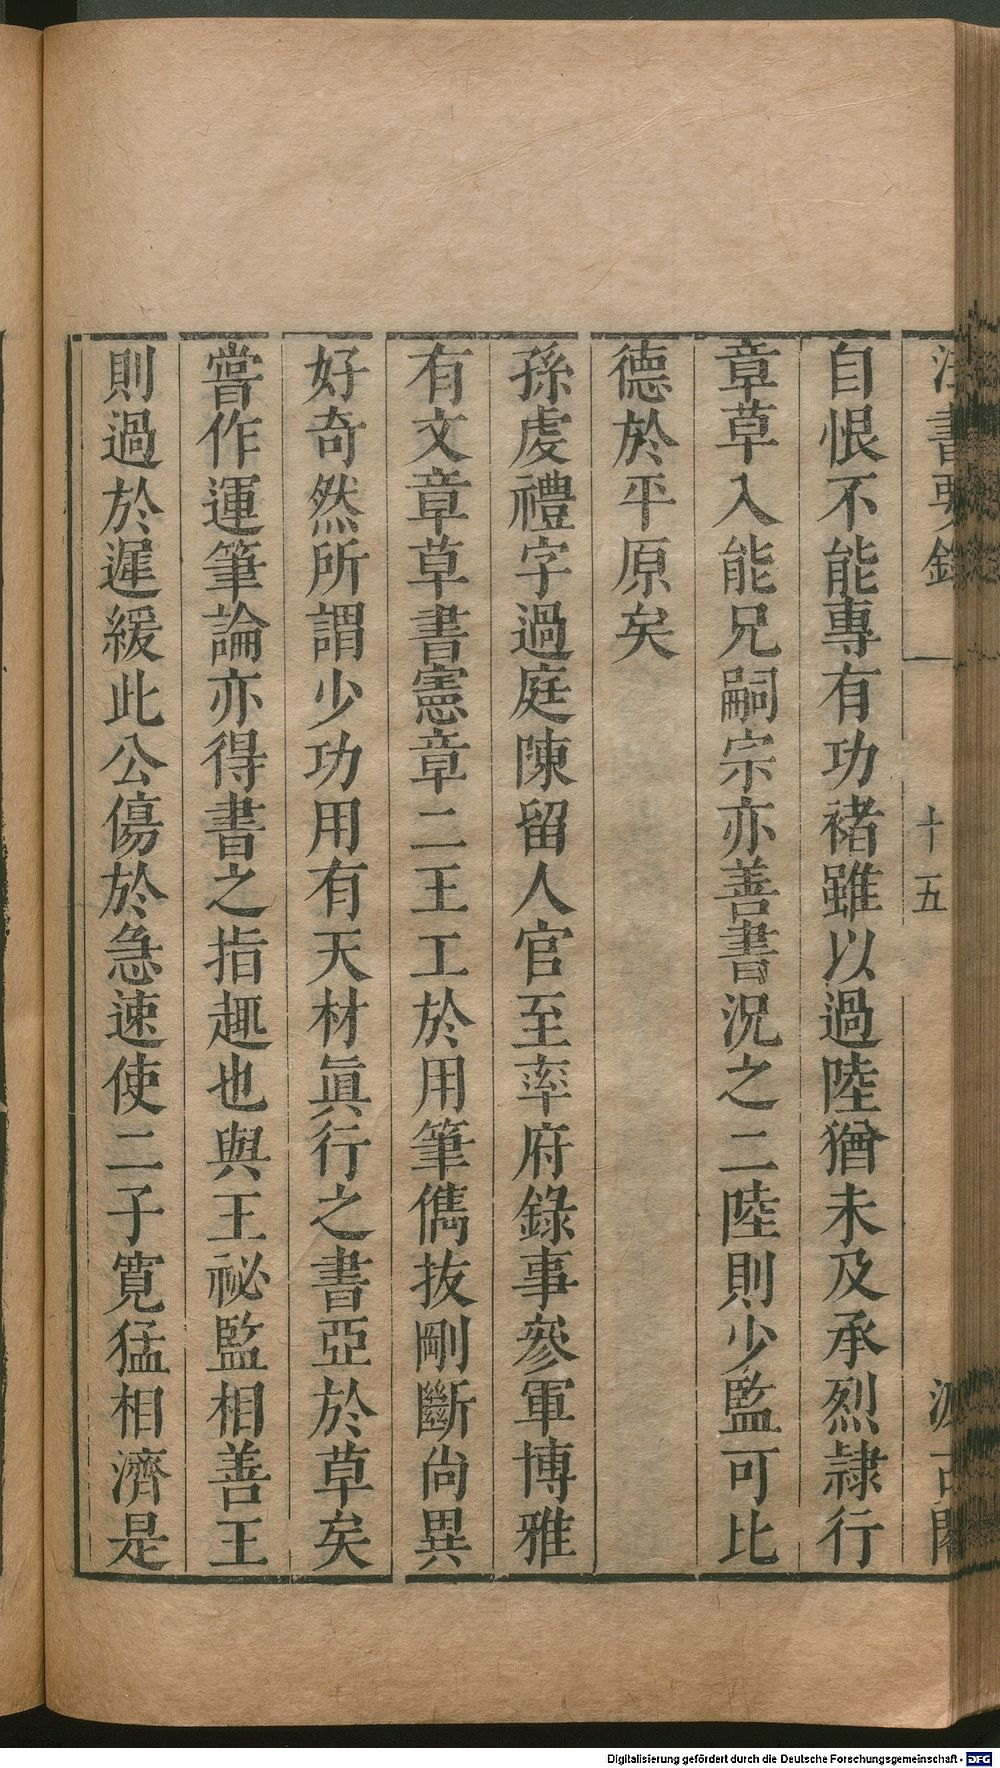 書要錄
十五
自恨不能專有功褚雖以過陸猶未及承烈隷行
章草入能兄嗣宗亦善書況之二陸則少監可比
德於平原矣
孫虔禮字過庭陳留人官至率府錄事參軍博雅
有文章草書憲章二王工於用筆儁拔剛斷尙異
好奇然所謂少功用有天材眞行之書亞於草矣
嘗作運筆論亦得書之指趣也與王祕監相善王
則過於遲緩此公傷於急速使二子寬猛相濟是
Digitalisierung gefördert durch die Deutsche Forschungsgemeinschaft - DFG